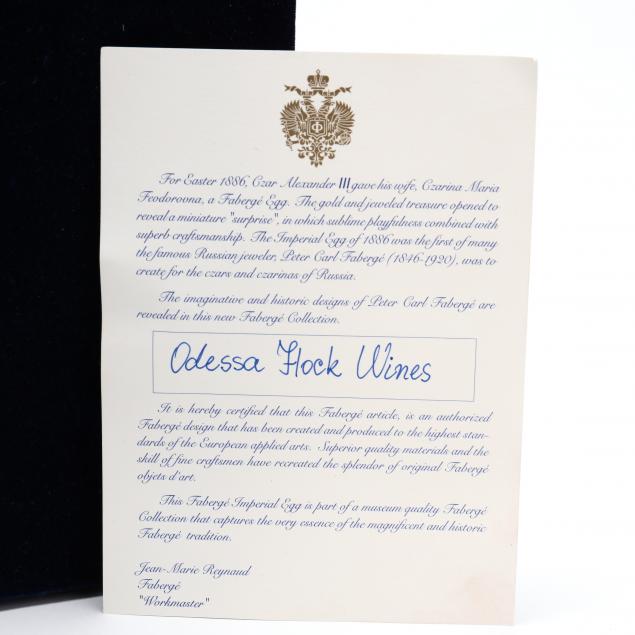 Ф
For Easter 1886, Czar Alexander III gave his wife, Czarina Maria
Feodorovna, a Fabergé Egg. The gold and jeweled treasure opened to
reveal a miniature "surprise", in which sublime playfulness combined with
superb craftsmanship. The Imperial Egg of 1886 was the first of many
the famous Russian jeweler, Peter Carl Fabergé (1846-1920), was to
create for the czars and czarinas of Russia.
The imaginative and historic designs of Peter Carl Fabergé are
revealed in this new Fabergé Collection.
Odessa Hock Wines
It is hereby certified that this Fabergé article, is an authorized
Fabergé design that has been created and produced to the highest stan-
dards of the European applied arts. Superior quality materials and the
skill of fine craftsmen have recreated the splendor of original Fabergé
objets d'art.
This Fabergé Imperial Egg is part of a museum quality Fabergé
Collection that captures the very essence of the magnificent and historic
Fabergé tradition.
Jean-Marie Reynaud
Fabergé
"Workmaster"